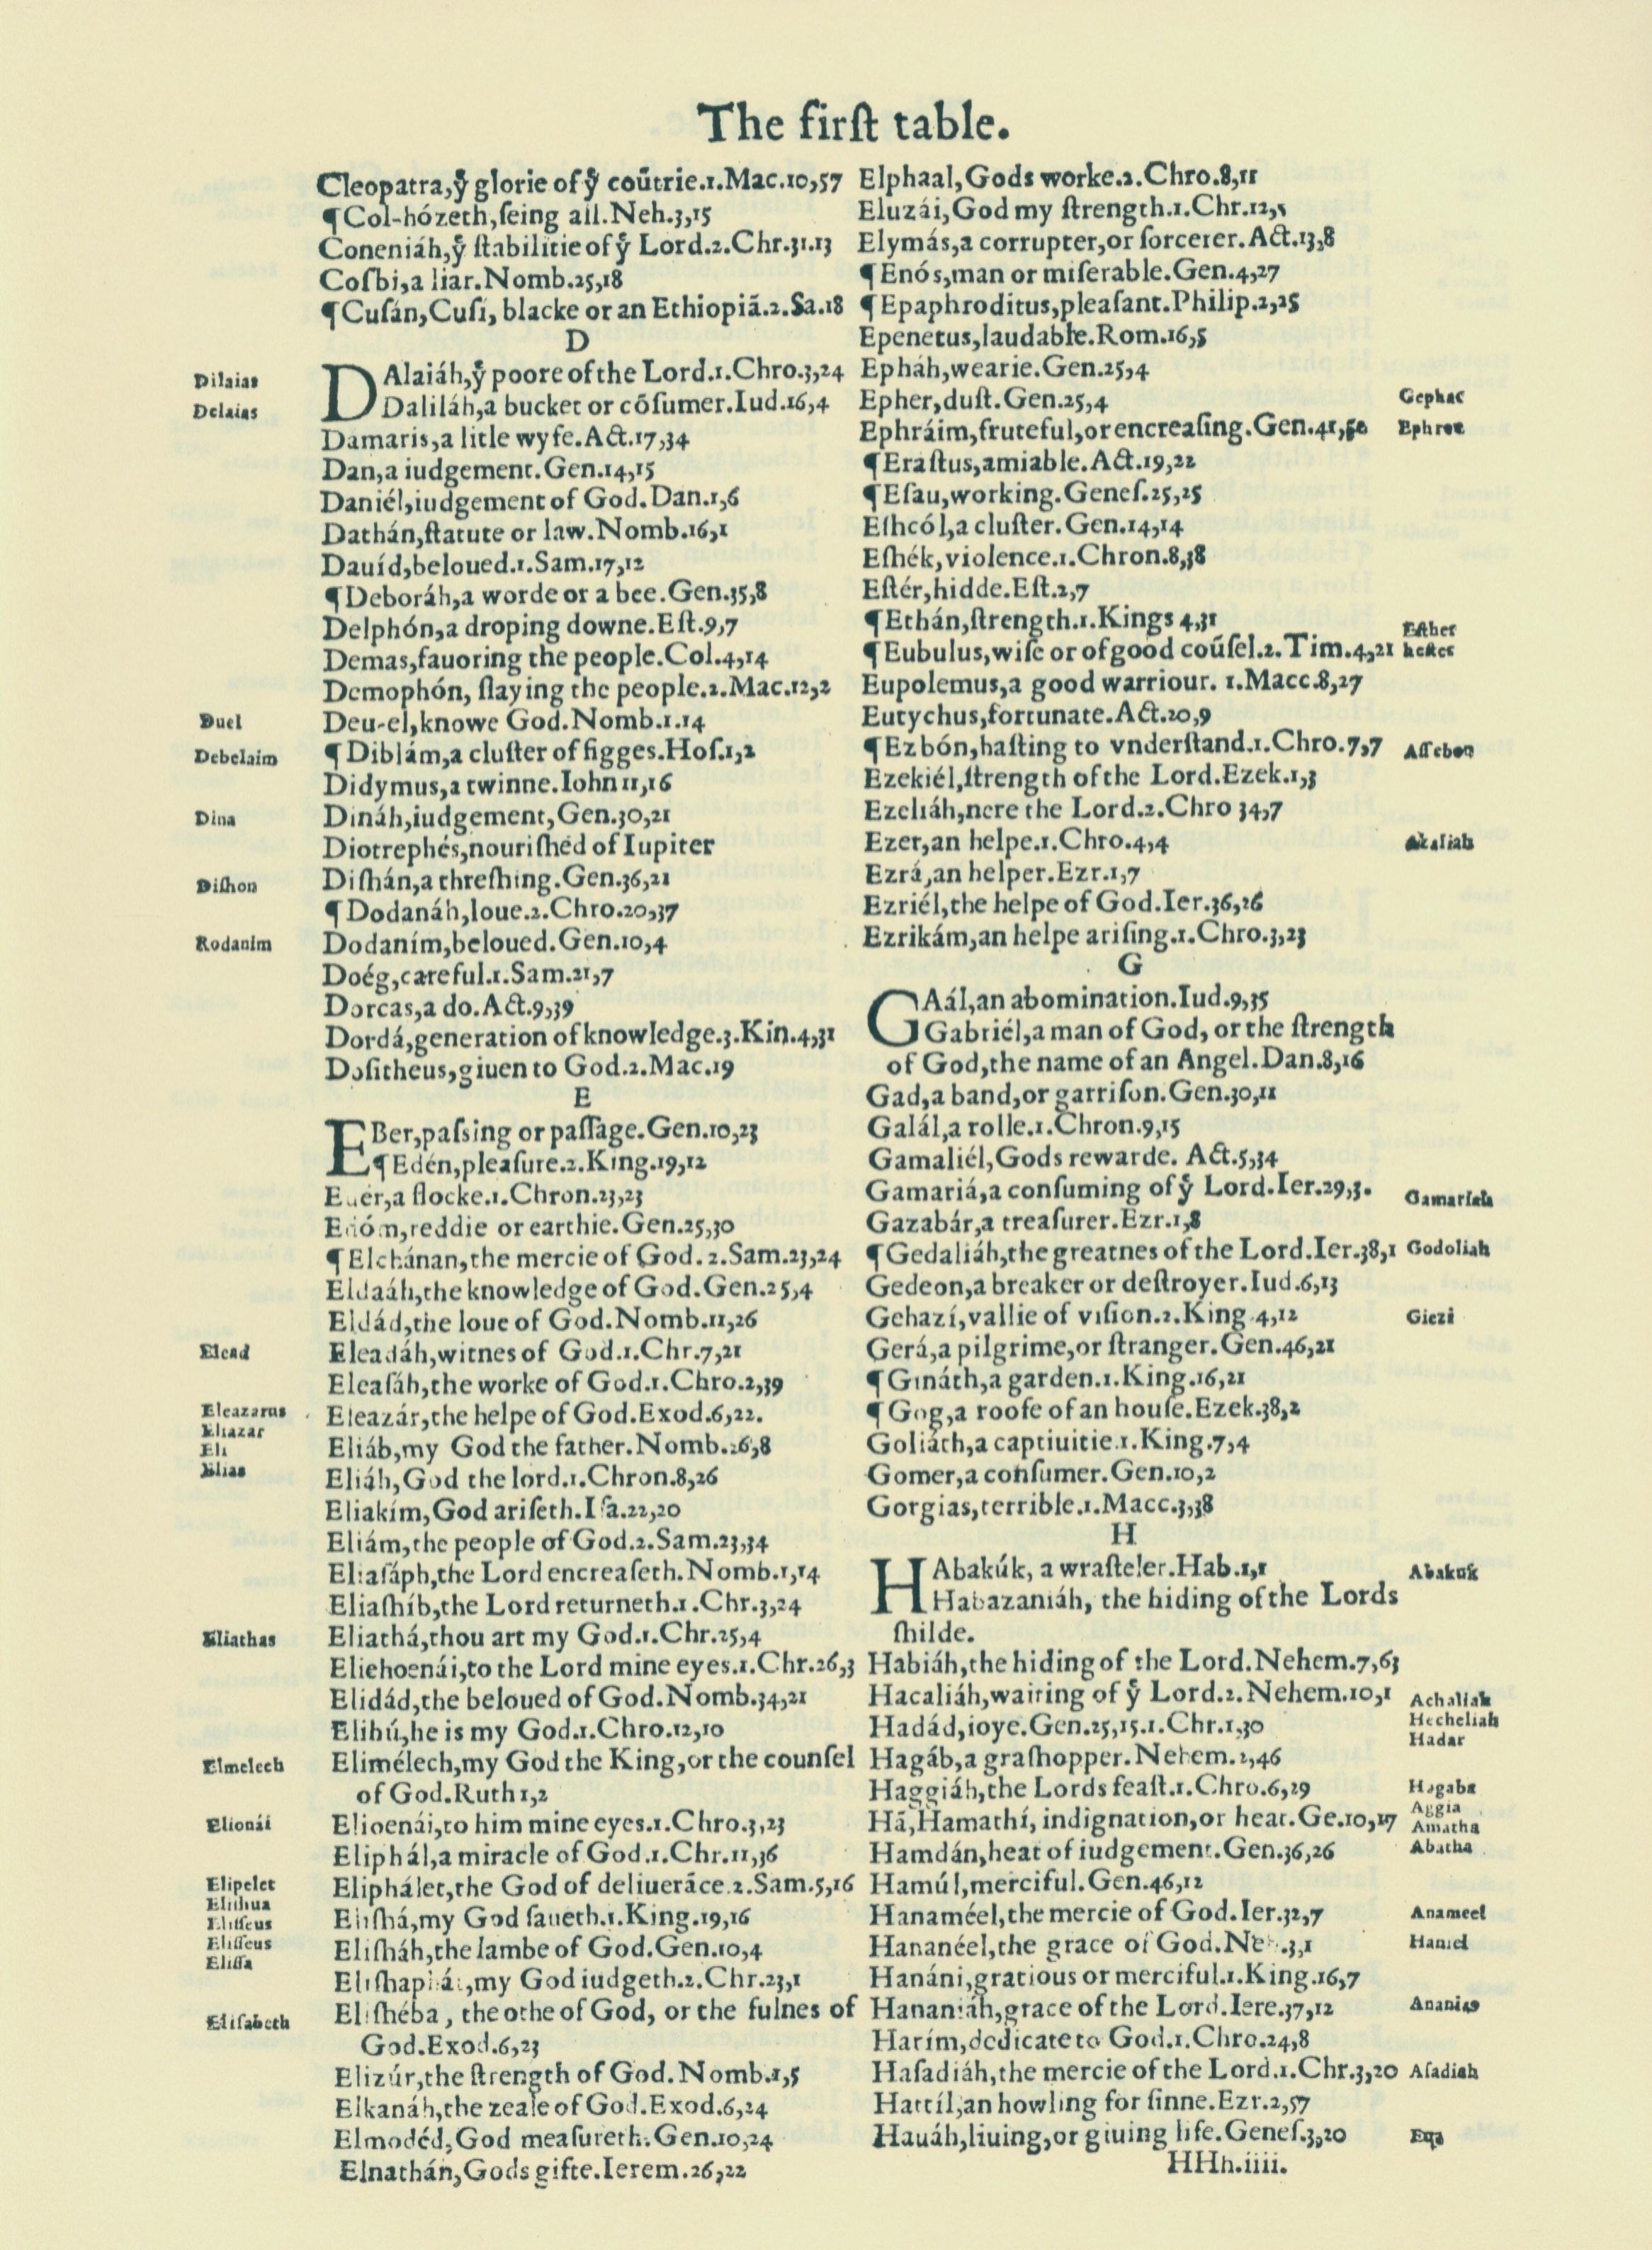 The firſt table.
Cleopatra,yͤ glorie of yͤ coūtrie.1.Mac.10,57
¶Col-hózeth,ſeing all.Neh.3,15
Coneniáh,yͤ ſtabilitie of yͤ Lord.2.Chr.31.13
Coſbi,a liar.Nomb.25,18
¶Cuſán,Cuſi, blacke or an Ethiopiā.2.Sa.18
D
Dilaias
DAlaiáh,yͤ poore of the Lord.1.Chro.3,24
Delaias
Daliláh,a bucket or cōſumer.Iud.16,4
Damaris,a litle wyfe.Act.17,34
Dan,a iudgement.Gen.14,15
Daniél,iudgement of God.Dan.1,6
Dathán,ſtatute or law.Nomb.16,1
Dauíd,beloued.1.Sam.17,12
¶Deboráh,a worde or a bee.Gen.35,8
Delphón,a droping downe.Eſt.9,7
Demas,fauoring the people.Col.4,14
Demophón, ſlaying the people.2.Mac.12,2
Duel
Deu-el,knowe God.Nomb.1.14
Debelaim
¶Diblám,a cluſter of figges.Hoſ.1,2
Didymus,a twinne.Iohn 11,16
Dina
Dináh,iudgement,Gen.30,21
Diotrephés,nouriſhed of Iupiter
Diſhon
Diſhán,a threſhing.Gen.36,21
¶Dodanáh,loue.2.Chro.20,37
Rodanim
Dodaním,beloued.Gen.10,4
Doég,careful.1.Sam.21,7
Dorcas,a do.Act.9,39
Dordá,generation of knowledge.3.Kin.4,31
Doſitheus,giuen to God.2.Mac.19
E
EBer,paſsing or paſſage.Gen.10,23
¶Edén,pleaſure.2.King.19,12
a flocke.1.Chron.23,23
Edóm,reddie or earthie.Gen.25,30
¶Elchánan,the mercie of God.2.Sam.23,24
Eldaáh,the knowledge of God.Gen.25,4
Eldád,the loue of God.Nomb.11,26
Elead
Eleadáh,witnes of God.1.Chr.7,21
Eleaſáh,the worke of God.1.Chro.2,39
Eleazarus
Eleazár,the helpe of God.Exod.6,22.
Eliazar
Eli
Eliáb,my God the father.Nomb.26,8
Elias
Eliáh,God the lord.1.Chron.8,26
Eliakím,God ariſeth.Iſa.22,20
Eliám,the people of God.2.Sam.23,34
Eliaſáph,the Lord encreaſeth.Nomb.1,14
Eliaſhíb,the Lord returneth.1.Chr.3,24
Eliathas
Eliathá,thou art my God.1.Chr.25,4
Eliehoenái,to the Lord mine eyes.1.Chr.26,3
Elidád,the beloued of God.Nomb.34,21
Elihú,he is my God.1.Chro.12,10
Elmelech
Elimélech,my God the King,or the counſel
of God.Ruth 1,2
Elionái
Elioenái,to him mine eyes.1.Chro.3,23
Eliphál,a miracle of God.1.Chr.11,36
Elipelet
Eliphálet,the God of deliuerāce.2.Sam.5,16
Eliſhua
Eliſſeus
Eliſhá,my God ſaueth.1.King.19,16
Eliſſeus
Eliſháh,the lambe of God.Gen.10,4
Eliſſa
Eliſhaphát,my God iudgeth.2.Chr.23,1
Eliſabeth
Eliſhéba, the othe of God, or the fulnes of
God.Exod.6,23
Elizúr,the ſtrength of God.Nomb.1,5
Elkanáh,the zeale of God.Exod.6,24
Elmodéd,God meaſureth.Gen.10,24
Elnathán,Gods gifte.Ierem.26,22
Elphaal,Gods worke.2.Chro.8,11
Eluzái,God my ſtrength.1.Chr.12,5
Elymás,a corrupter,or ſorcerer.Act.13,8
¶Enós,man or miſerable.Gen.4,27
¶Epaphroditus,pleaſant.Philip.2,25
Epenetus,laudable.Rom.16,5
Epháh,wearie.Gen.25,4
Epher,duſt.Gen.25,4
Gephar
Ephráim,fruteful,or encreaſing.Gen.41,
Ephron
¶Eraſtus,amiable.Act.19,22
¶Eſau,working.Geneſ.25,25
Eſhcól,a cluſter.Gen.14,14
Eſhék,violence.1.Chron.8,38
Eſtér,hidde.Eſt.2,7
¶Ethán,ſtrength.1.Kings 4,31
Eſther
¶Eubulus,wiſe or of good coūſel.2.Tim.4,21
heſter
Eupolemus,a good warriour. 1.Macc.8,27
Eutychus,fortunate.Act.20,9
¶Ezbón,haſting to vnderſtand.1.Chro.7,7
Aſſebon
Ezekiél,ſtrength of the Lord.Ezek.1,3
Ezeliáh,nere the Lord.2.Chro 34,7
Ezer,an helpe.1.Chro.4,4
Azaliah
Ezrá,an helper.Ezr.1,7
Ezriél,the helpe of God.Ier.36,26
Ezrikám,an helpe ariſing.1.Chro.3,23
G
GAál,an abomination.Iud.9,35
Gabriél,a man of God, or the ſtrength
of God,the name of an Angel.Dan.8,16
Gad,a band,or garriſon.Gen.30,11
Galál,a rolle.1.Chron.9,15
Gamaliél,Gods rewarde. Act.5,34
Gamariá,a conſuming of yͤ Lord.Ier.29,3.
Gamariah
Gazabár,a treaſurer.Ezr.1,8
¶Gedaliáh,the greatnes of the Lord.Ier.38,1
Godoliah
Gedeon,a breaker or deſtroyer.Iud.6,13
Gehazí,vallie of viſion.2.King 4,12
Giezi
Gerá,a pilgrime,or ſtranger.Gen.46,21
¶Gináth,a garden.1.King.16,21
¶Gog,a roofe of an houſe.Ezek.38,2
Goliáth,a captiuitie.1.King.7,4
Gomer,a conſumer.Gen.10,2
Gorgias,terrible.1.Macc.3,38
H
HAbakúk, a wraſteler.Hab.1,1
Abakuk
Habazaniáh, the hiding of the Lords
ſhilde.
Habiáh,the hiding of the Lord.Nehem.7,63
Hacaliáh,waiting of yͤ Lord.2.Nehem.10,1
Achaliah
Hecheliah
Hadád,ioye.Gen.25,15.1.Chr.1,30
Hadar
Hagáb,a graſhopper.Nehem.2,46
Haggiáh,the Lords feaſt.1.Chro.6,29
Hagaba
Aggia
Hā,Hamathí, indignation,or heat.Ge.10,17
Amatha
Hamdán,heat of iudgement.Gen.36,26
Abatha
Hamúl,merciful.Gen.46,12
Hanaméel,the mercie of God.Ier.32,7
Anameel
Hananéel,the grace of God.Neh.3,1
Haniel
Hanáni,gratious or merciful.1.King.16,7
Hananiáh,grace of the Lord.Iere.37,12
Ananias
Harím,dedicate to God.1.Chro.24,8
Haſadiáh,the mercie of the Lord.1.Chr.3,20
Aſadiah
Hattíl,an howling for ſinne.Ezr.2,57
Hauáh,liuing,or giuing life.Geneſ.3,20
Eua
HHh.iiii.